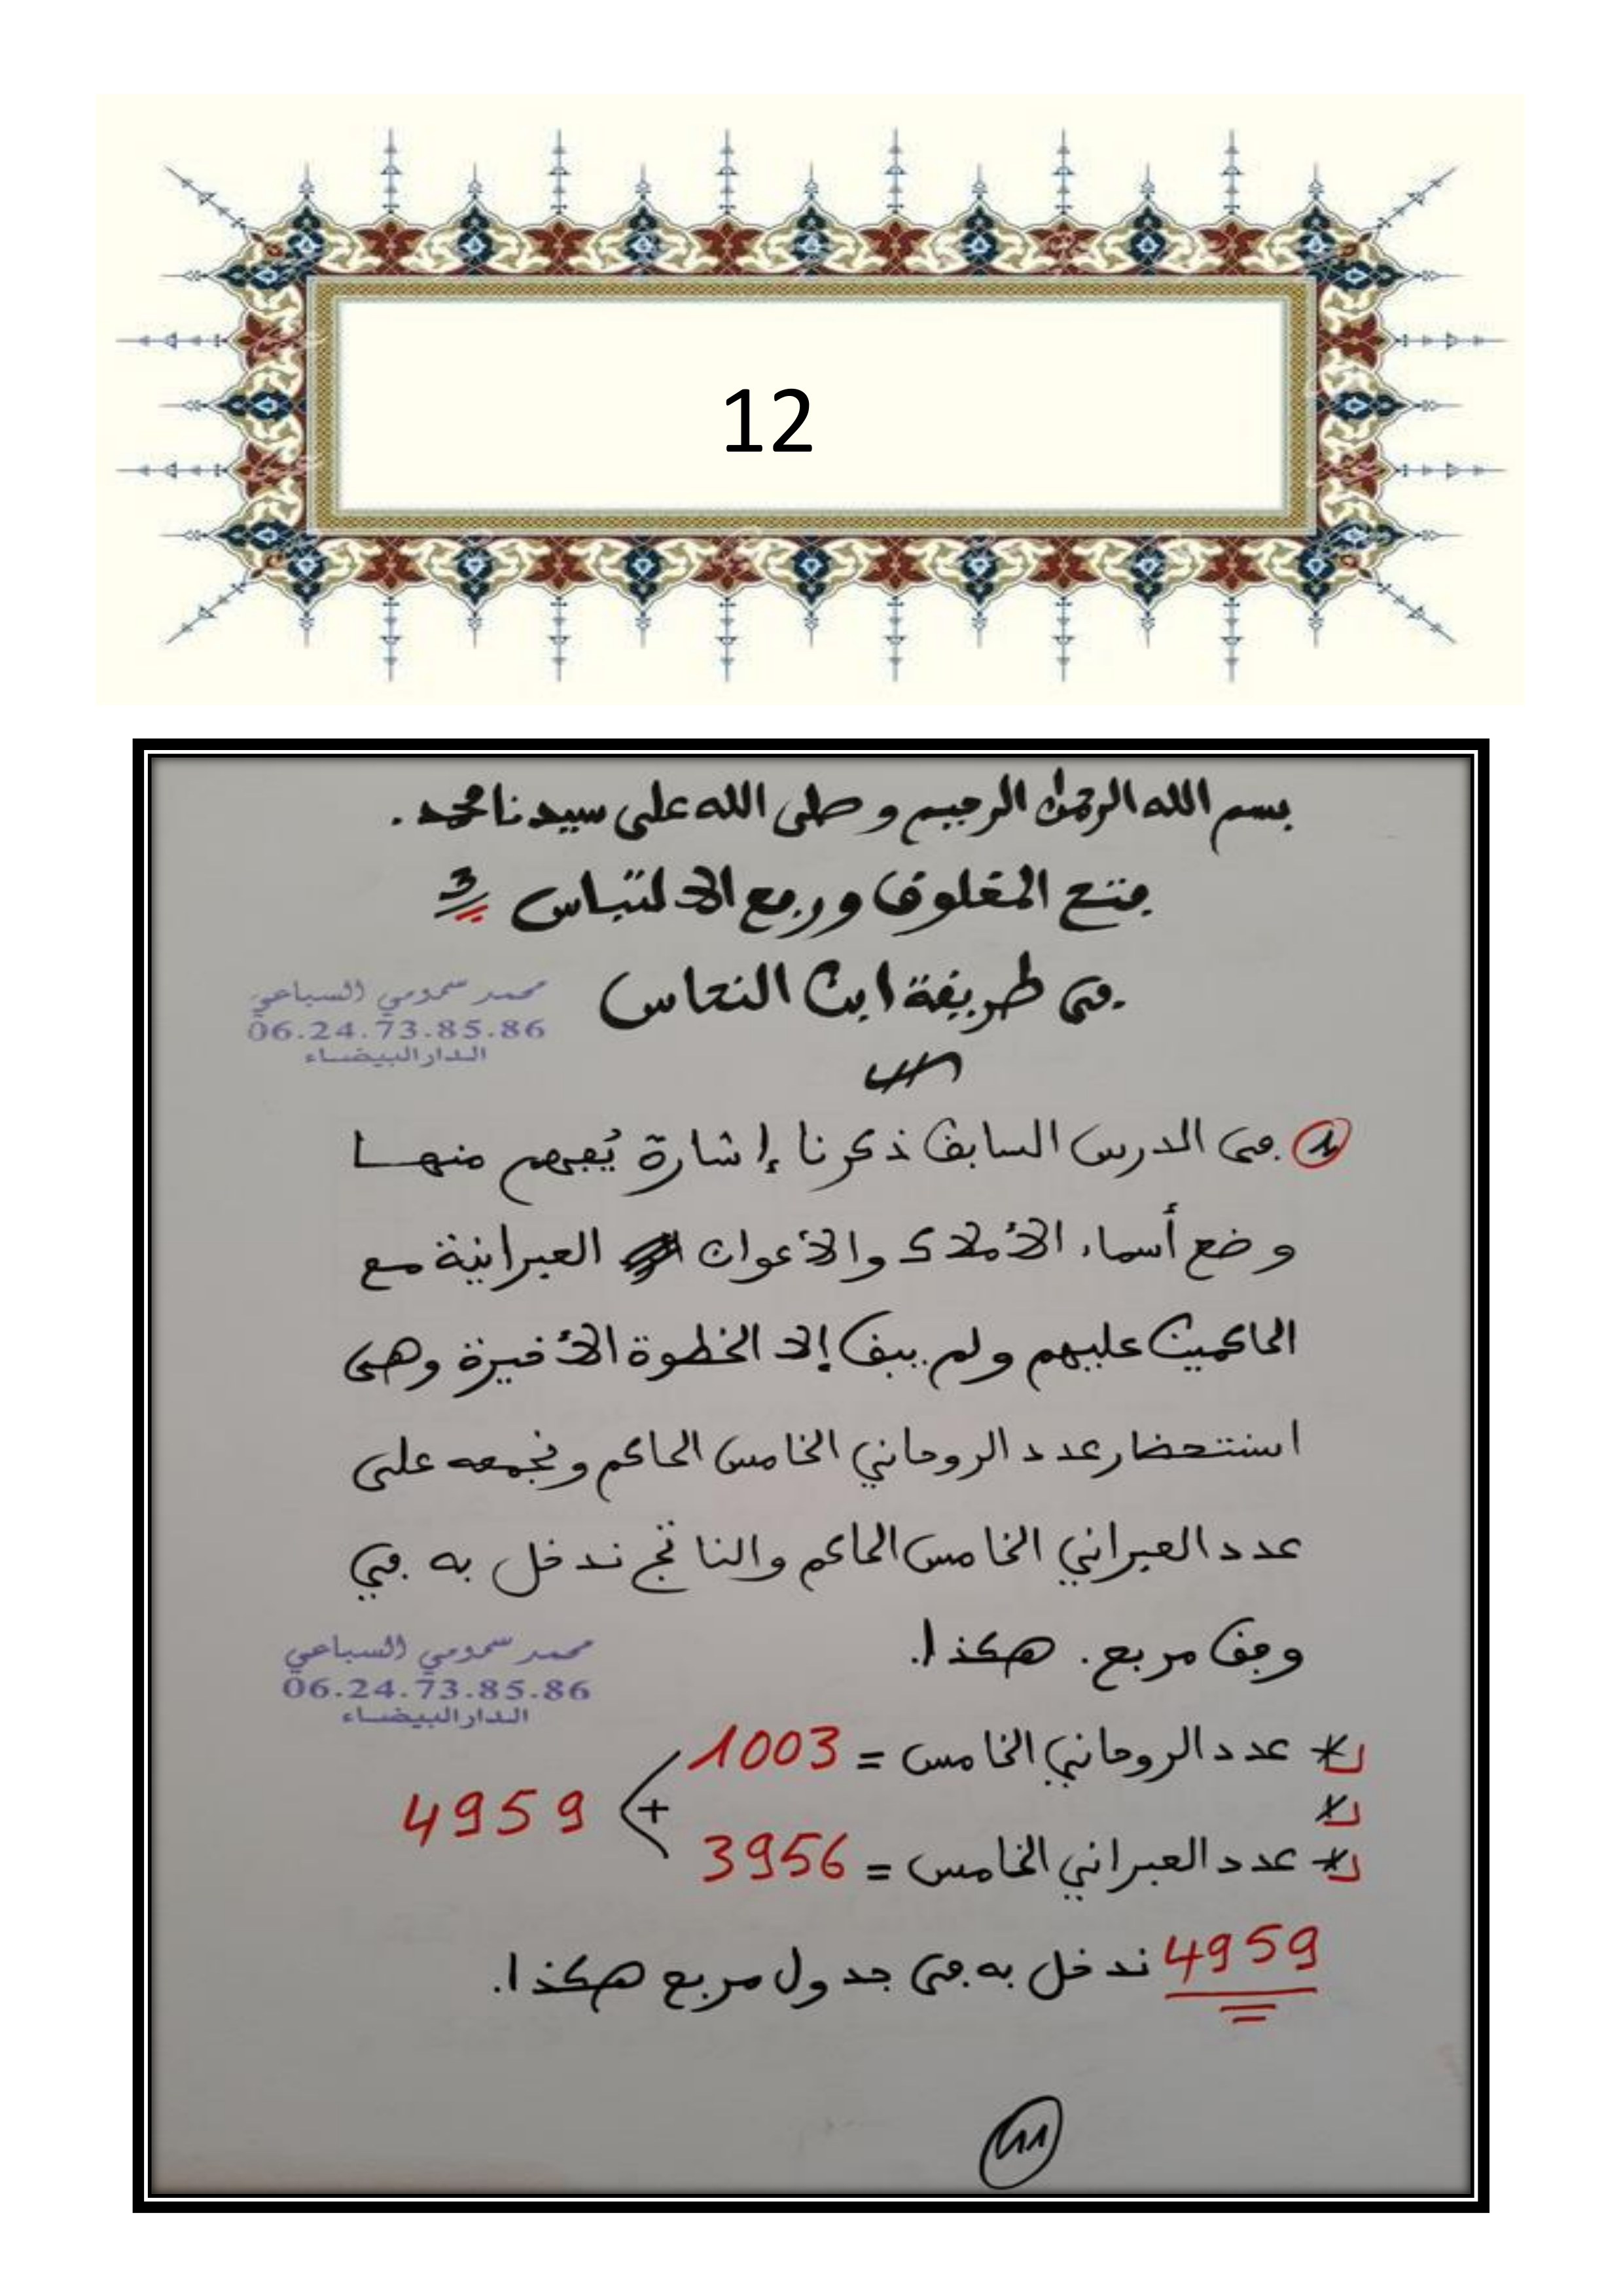 12
بسم الله الرحمن الرحيم و صلى الله على سيدنا محمد.
فتح المغلوق ورفع الالتباس 3
في طريقة ابن النحاس
محمد سمومي السباعي
06.24.73.85.86
الدار البيضاء
في الدرس السابق ذكرنا إشارة يُفهم منها
وضع أسماء الأملاك والأعوان العبرانية مع
الحاكمين عليهم ولم يبق إلا الخطوة الأخيرة وهي
استحضار عدد الروحاني الخامس الحاكم ونجمعه على
عدد العبراني الخامس الحاكم والناتج ندخل به في
وفق مربع. هكذا.
محمد سمومي السباعي
06.24.73.85.86
الدار البيضاء
* عدد الروحاني الخامس = 1003
+ 4959
* عدد العبراني الخامس = 3956
4959 ندخل به في جدول مربع هكذا.
11